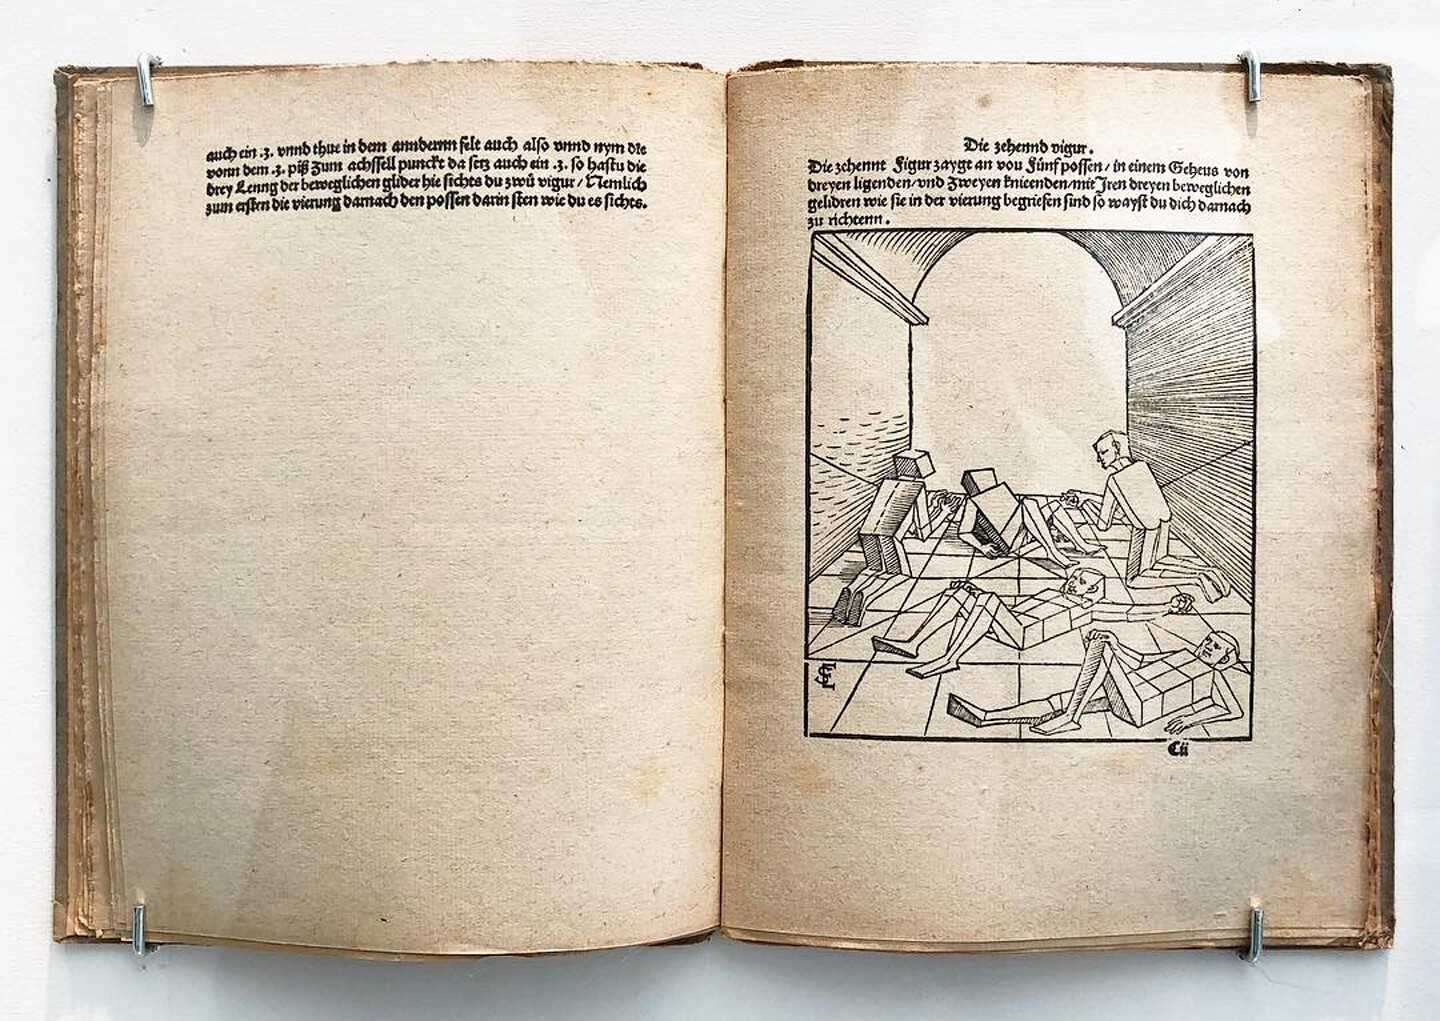 auch ein .3. vnnd thue in dem anndernn felt auch also vnnd nym die
vonn dem .3. piß zum achssell punckt da setz auch ein .3. so hastu die
drey Lenng der beweglichen glider hie sichts du zwů vigur / Nemlich
zum ersten die vierung darnach den possen darin sten wie du es sichts.
Die zehennd vigur.
Die zehennt Figur zaygt an vou Fünf possen / in einem Geheus von
dreyen ligenden / vnd zweyen knicenden / mit Iren dreyen beweglichen
gelidren wie sie in der vierung begriefen sind so wayst du dich darnach
zu richtenn.
C ii